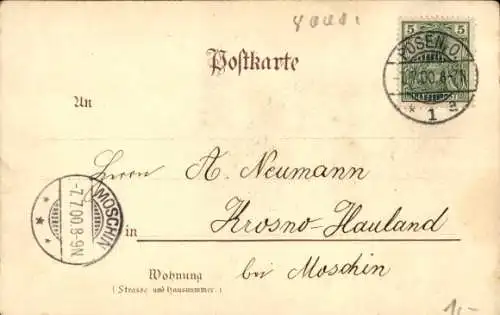 5 5
POSEN.O.1
7.00.8-7N
* 1 a
Postkarte
An
Herrn A. Neumann
in Krosno-Hauland
bei Moschin
MOSCHIN
-7.7.00.8-9N
Wohnung
(Strasse und Hausnummer.)